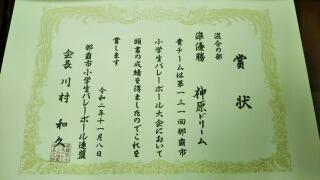 賞状
混合の部
準優勝
神原ドリーム
貴チームは第一三一回那覇市
小学生バレーボール大会において
頭書の成績を得ましたのでこれを
賞します
令和二年十一月八日
那覇市小学生バレーボール連盟
会長 川村 和久